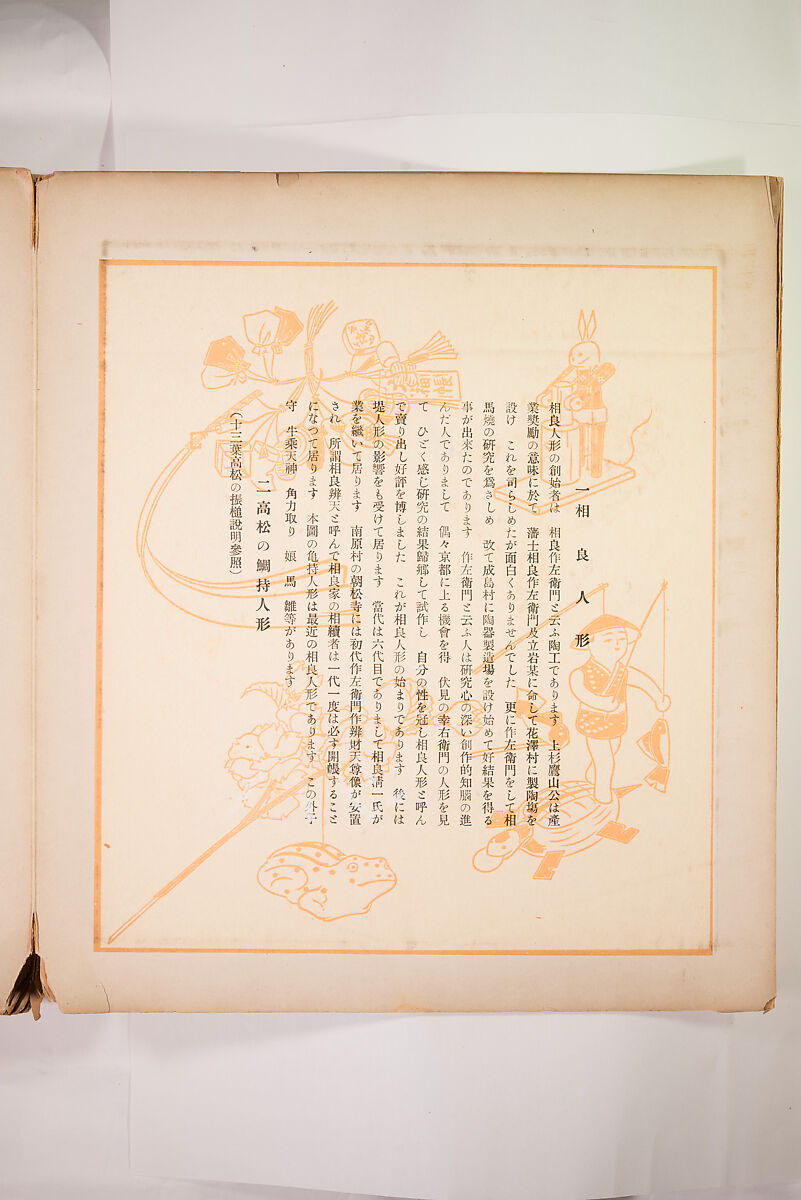 一 相良人形
相良人形の創始者は 相良作左衛門と云ふ陶工であります 上杉鷹山公は產
業奬勵の意味に於て 藩士相良作左衛門及立岩某に命して花澤村に製陶塲を
設け これを司らしめたが面白くありませんでした 更に作左衛門をして相
馬燒の硏究を爲さしめ 改て成島村に陶器製造塲を設け始めて好結果を得る
事が出來たのであります 作左衛門と云ふ人は硏究心の深い創作的知腦の進
んだ人でありまして 偶々京都に上る機會を得 伏見の幸右衛門の人形を見
て ひどく感じ硏究の結果歸鄕して試作し 自分の性を冠し相良人形と呼ん
で賣り出し好評を博しました これが相良人形の始まりであります 後には
堤人形の影響をも受けて居ります 當代は六代目でありまして相良淸一氏が
業を繼いて居ります 南原村の朝松寺には初代作左衛門作辨財天尊像が安置
され 所謂相良辨天と呼んで相良家の相續者は一代一度は必す開帳すること
になつて居ります 本圖の亀持人形は最近の相良人形であります この外子
守 牛乘天神 角力取り 娘 馬 雛等があります
二 高松の鯛持人形
(十三葉高松の振槌說明參照)